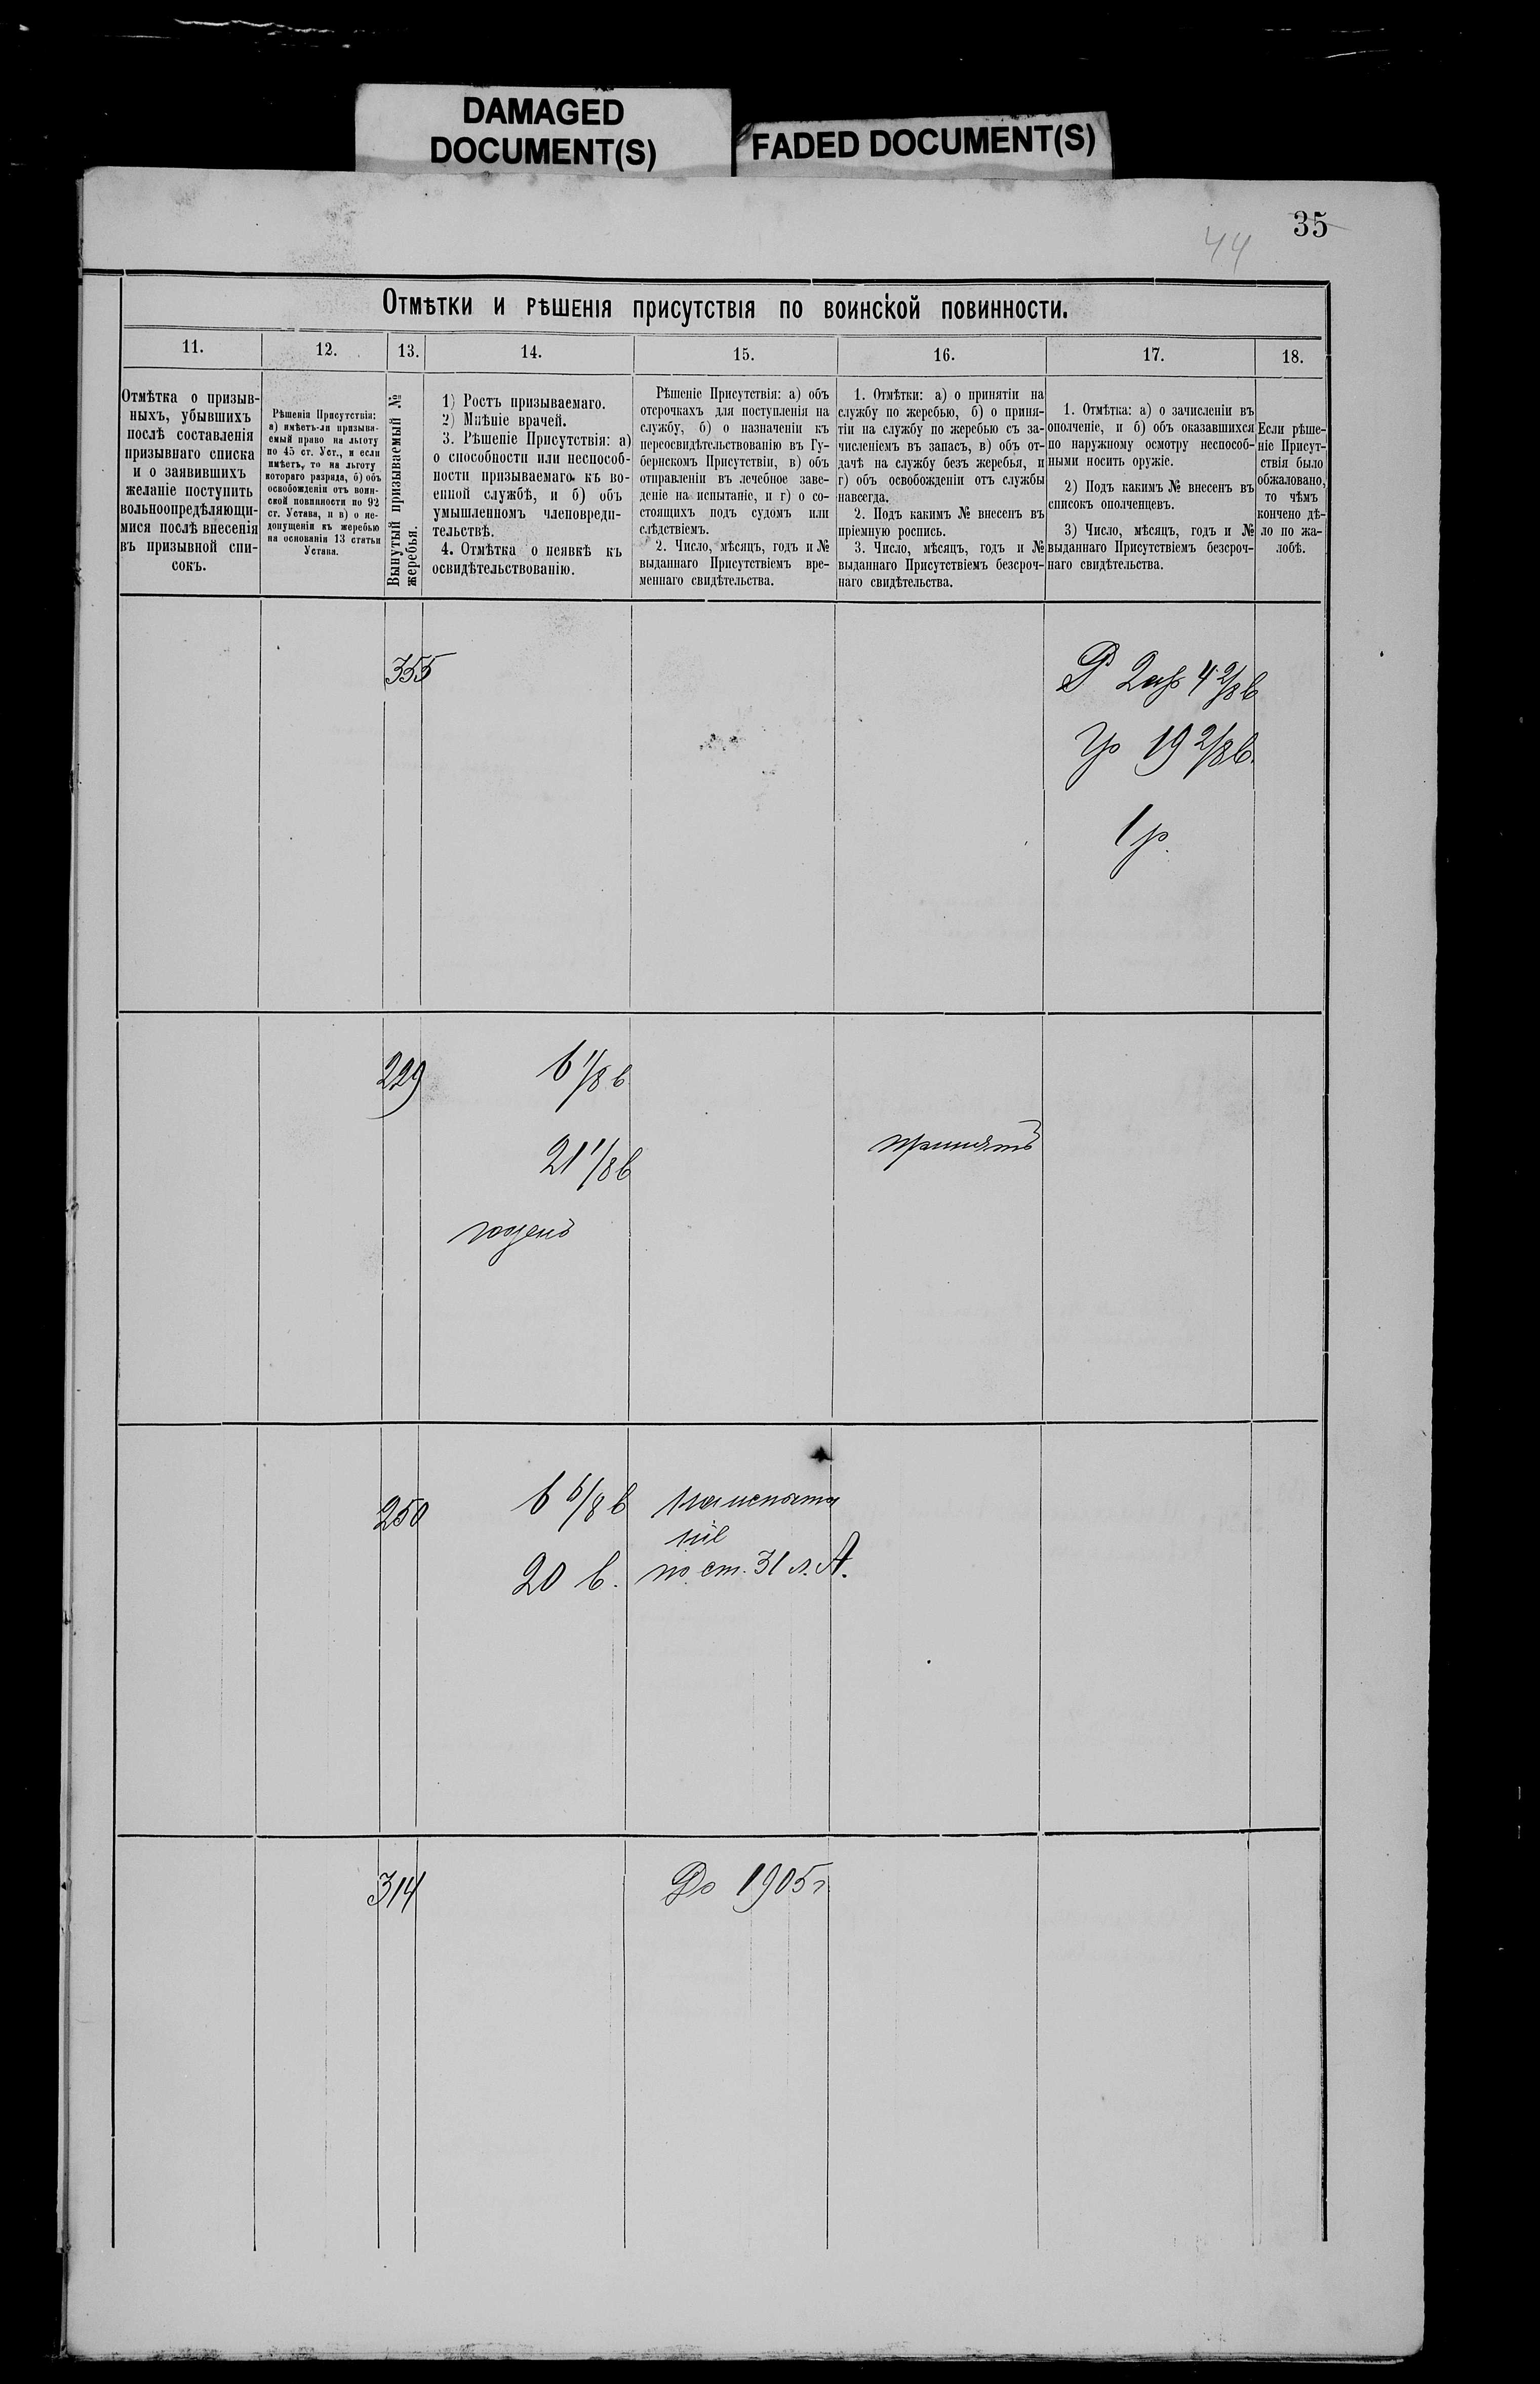 DAMAGED
DOCUMENT(S)
FADED DOCUMENT(S)
35
44
Отмѣтки и рѣшенія присутствія по воинской повинности.
11.
12.
13.
14.
15.
16.
17.
18.
Отмѣтка о призыв-
ныхъ, убывшихъ
послѣ составленія
призывнаго списка
и о заявившихъ
желаніе поступить
вольноопредѣляющи-
мися послѣ внесенія
въ призывной спи-
сокъ.
Рѣшенія Присутствія:
а) имѣетъ-ли призыва-
емый право на льготу
по 45 ст. Уст., и если
имѣетъ, то на льготу
котораго разряда, б) объ
освобожденіи отъ воин-
ской повинности по 92
ст. Устава, и в) о не-
допущеніи къ жеребью
на основаніи 13 статьи
Устава.
Вынутый призываемый №
жеребья.
1) Ростъ призываемаго.
2) Мнѣніе врачей.
3. Рѣшеніе Присутствія: а)
о способности или неспособ-
ности призываемаго къ во-
енной службѣ, и б) объ
умышленномъ членовреди-
тельствѣ.
4. Отмѣтка о неявкѣ къ
освидѣтельствованію.
Рѣшеніе Присутствія: а) объ
отсрочкахъ для поступленія на
службу, б) о назначеніи къ
переосвидѣтельствованію въ Гу-
бернскомъ Присутствіи, в) объ
отправленіи въ лечебное заве-
деніе на испытаніе, и г) о со-
стоящихъ подъ судомъ или
слѣдствіемъ.
2. Число, мѣсяцъ, годъ и №
выданнаго Присутствіемъ вре-
меннаго свидѣтельства.
1. Отмѣтки: а) о принятіи на
службу по жеребью, б) о приня-
тіи на службу по жеребью съ за-
численіемъ въ запасъ, в) объ от-
дачѣ на службу безъ жеребья, и
г) объ освобожденіи отъ службы
навсегда.
2. Подъ какимъ № внесенъ въ
пріемную роспись.
3. Число, мѣсяцъ, годъ и №
выданнаго Присутствіемъ безсроч-
наго свидѣтельства.
1. Отмѣтка: а) о зачисленіи въ
ополченіе, и б) объ оказавшихся
по наружному осмотру неспособ-
ными носить оружіе.
2) Подъ какимъ № внесенъ въ
списокъ ополченцевъ.
3) Число, мѣсяцъ, годъ и №
выданнаго Присутствіемъ безсроч-
наго свидѣтельства.
Если рѣше-
ніе Присут-
ствія было
обжаловано,
то чѣмъ
кончено дѣ-
ло по жа-
лобѣ.
355
Р 2ар 4 2/8 в
Гр 19 2/8 в.
1 р.
229
6 1/8 в
21 1/8 в
годенъ
принятъ
250
6 6/8 в
20 в.
на испыта
ніе
по ст. 31 л. А.
314
До 1905 г